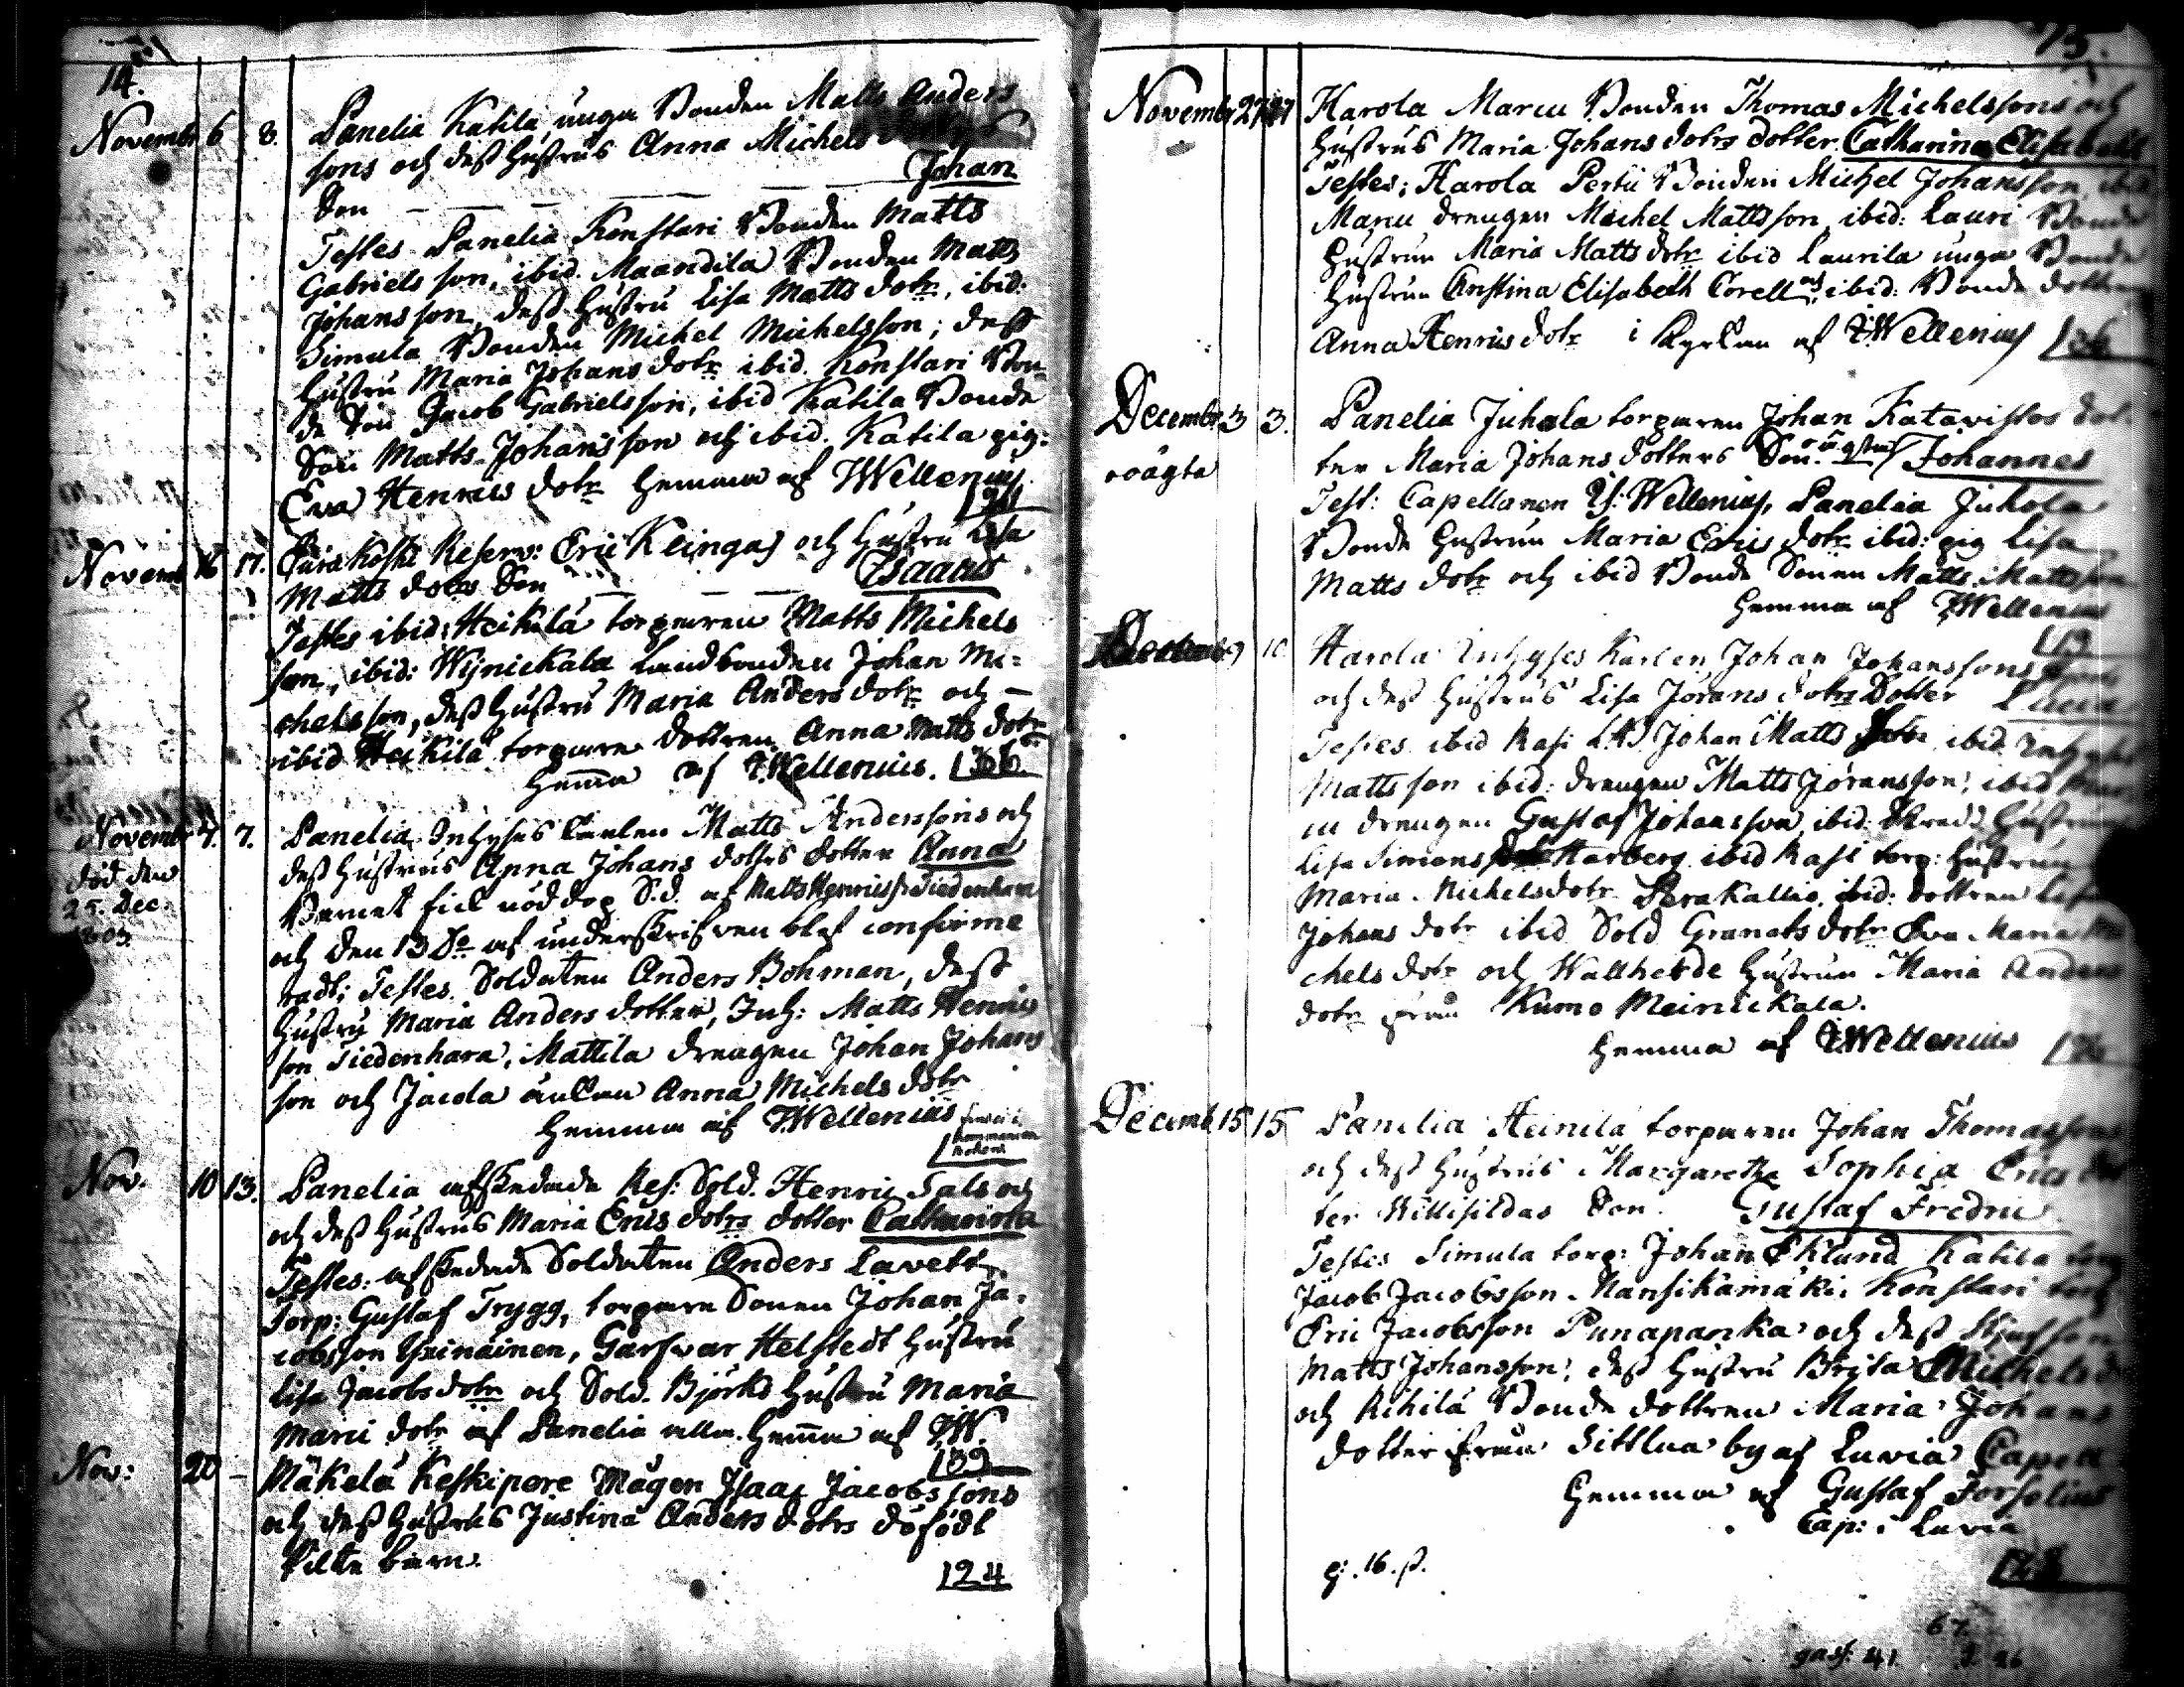 14.
Novembr 6 8. Panelia Katila unga Bonden Matts Anders
sons och dess hustrus Anna Michels
Son — — — — Johan
Testes Panelia Konstari Bonden Matts
Gabriels son, ibid. Maandila Bonden Matts
Johansson, dess hustru Lisa Matts dotr, ibid:
Simula Bonden Michel Michelsson; dess
hustru Maria Johans dotr ibid. Konstari Bon-
de Son Jacob Gabrielsson, ibid Katila Bonde
Son Matts Johansson och ibid. Katila pig:
Eva Henrics dotr hemma af J Wellenius
Novemb 16 17. Eurakoski Reserv: Eric Klinga och hustru Lisa
Matts dotrs Son — — Isaacus
Testes ibid: Heikilä torparen Matts Michels
son, ibid: Wijnickala Landbonden Johan Mi=
chelsson, dess hustru Maria Anders dotr och —
ibid Heikilä torpare dottren Anna Matts dotr
hemma af J. Wellenius. 136
Novembr 7. 7. Panelia Inhyses Karlen Matts Anderssons och
död den
25. Dec.
1803.
dess hustrus Anna Johans dotrs dotter Anna
Barnet fick nöddop S.d. af Matts Henriss: Siedenhara
och den 13 do af underskrifven blef confirme
radt; Testes. Soldaten Anders Bohman, dess
hustru Maria Anders dotter, Inh: Matts Henrics
son Siedenhara, Mattila drengen Johan Johans
son och Jacola enkan Anna Michels dotr
hemma af J. Wellenius
Nov. 10 13. Panelia afskedade Res: Sold. Henric Salo och
och dess hustrus Maria Erics dotrs dotter Catharina
Testes: afskedade Soldaten Anders Lavett
Torp: Gustaf Trygg, torpare Sonen Johan Ja-
cobsson Yrinäinen, Garfvar Helstedt hustru
Lisa Jacobs dotr och Sold. Björks hustru Maria
Marci dotr af Panelia alla. hemma af JW.
139
Nov: 20 — Mäkelä Keskipere Mågen Isaac Jacobssons
och dess hustrus Justina Anders dotrs döfödt
Pilte barn.
124
75.
Novembr 27 27 Harola Marcu Bonden Thomas Michelssons och
hustrus Maria Johans dotrs dotter Catharina Elisabeth
Testes; Harola Pertu Bonden Michel Johansson, ibid
Marcu drengen Michel Mattsson, ibid: Lauri Bonde
hustrun Maria Matts dotr ibid Laurila unga Bonde
hustrun Christina Elisabeth Corell, ibid: Bonde dottren
Anna Henrics dotr i Kyrkan af J. Wellenius
Decembr 3 3. Panelia Juhala torparen Johan Katavistos dot
oägta
ter Maria Johans dotters Son. oägta Johannes
Test: Capellanen J: Wellenius, Panelia Juhola
Bonde hustrun Maria Erics dotr ibid: pig Lisa
Matts dotr och ibid Bonde Sonen Matts Mattsson
hemma af J Wellenius
119
10. Harola Inhyses Karlen Johan Johanssons
och dess hustrus Lisa Jörans dotrs Dotter
Testes ibid Rasi Johan Matts ibid
Mattsson ibid: drengen Matts Jöransson, ibid
cu drengen Gustaf Johansson, ibid: Skrad: hustrun
Lisa Simons Harberg ibid Rasi torp: hustrun
Maria Michelsdotr Perakallio, ibid: dottren Lisa
Johans dotr ibid Sold Granats dotr Eva Maria Mi
chels dotr och Wallherde hustrun Maria Anders
dotr från Kumo Meinickala.
hemma af J. Wellenius
Decemb. 15 15 Panelia Heinilä torparen Johan Thomassons
och dess hustrus Margaretha Sophia Erics dot
ter Willsildas Son. Gustaf Fredric
Testes Simula torp: Johan Eklund Katila torp
Jacob Jacobsson Mansikamäki, Konstari torp
Eric Jacobsson Punapanka och dess
Matts Johansson, dess hustru Brita Michelsd
och Rihilä Bonde dottren Maria Johans
dotter från Sittlua by af Luvia Capell
hemma af Gustaf Forselius
Cap: i Luvia
g: 16. p.
67
41.